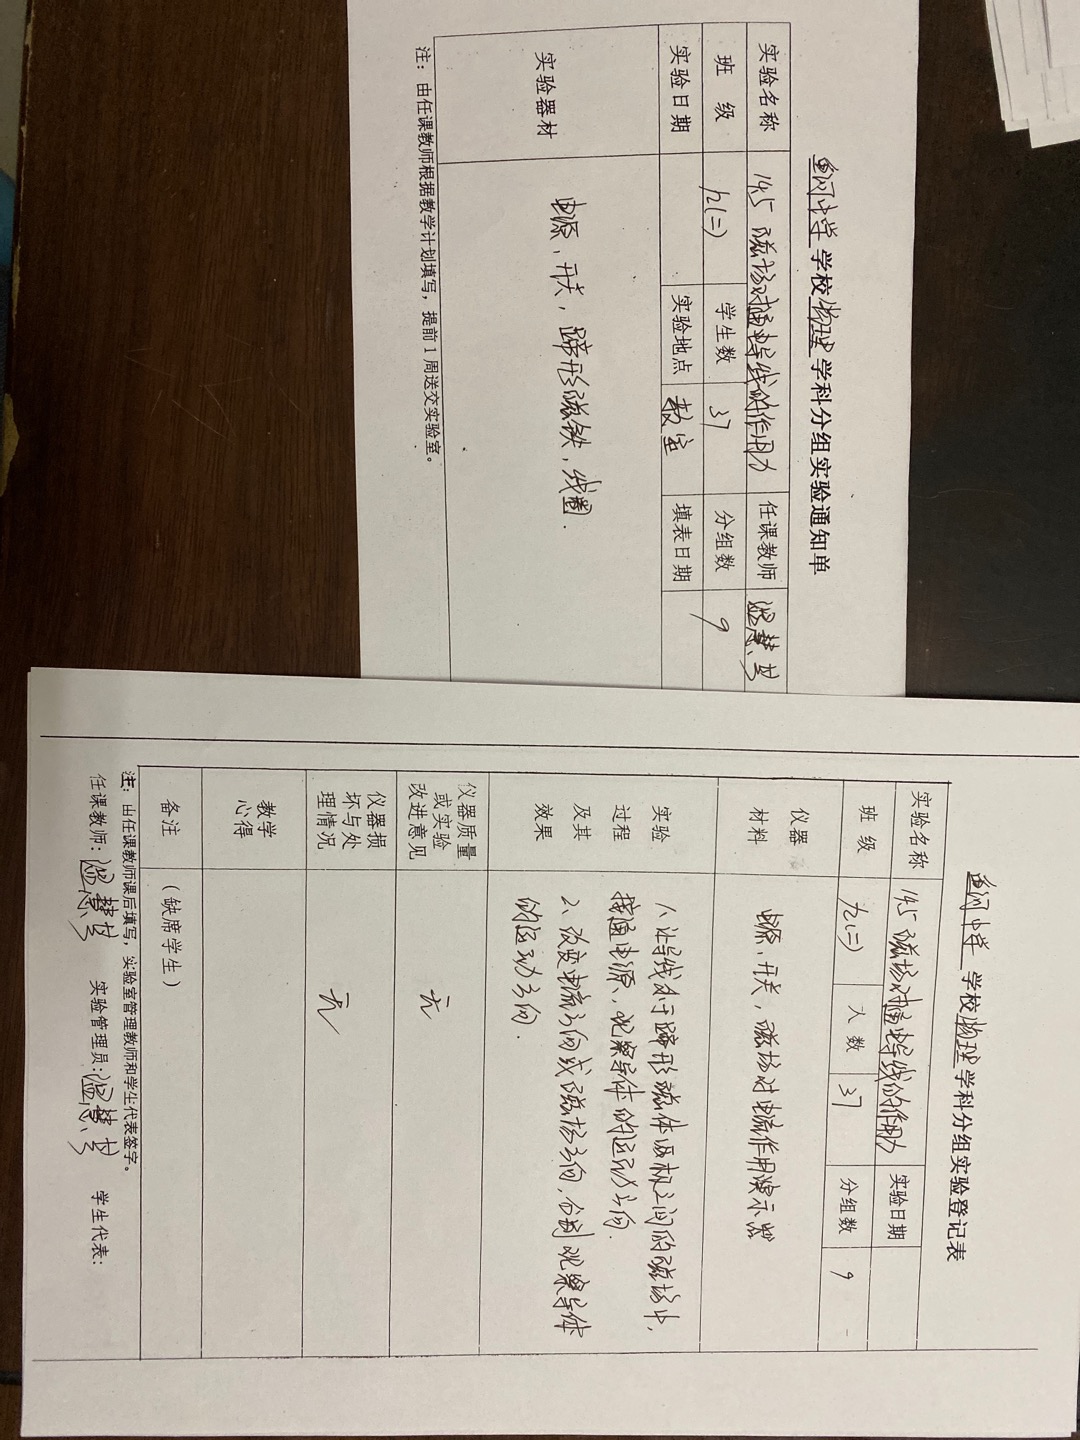 中学 学校 物理 学科分组实验通知单
实验名称 14.5 磁场对通电导线的作用力 任课教师
班 级 九(二) 学生数 37 分组数 9
实验日期 实验地点 教室 填表日期
实验器材 电源、开关，蹄形磁铁，线圈.
注：由任课教师根据教学计划填写，提前1周送交实验室。
中学 学校 物理 学科分组实验登记表
实验名称 14.5 磁场对通电导线的作用力 实验日期
班 级 九(二) 人 数 37 分组数 9
仪器
材料
电源、开关，磁场对电流作用演示器
实验
过程
及其
效果
1、让导线处于蹄形磁体两极之间的磁场中，
接通电源、观察导体的运动方向.
2、改变电流方向或磁场方向，分别观察导体
的运动方向.
仪器质量
或实验
改进意见
无
仪器损
坏与处
理情况
无
教学
心得
备注 （缺席学生）
注：由任课教师课后填写，实验室管理教师和学生代表签字。
任课教师： 实验管理员： 学生代表：